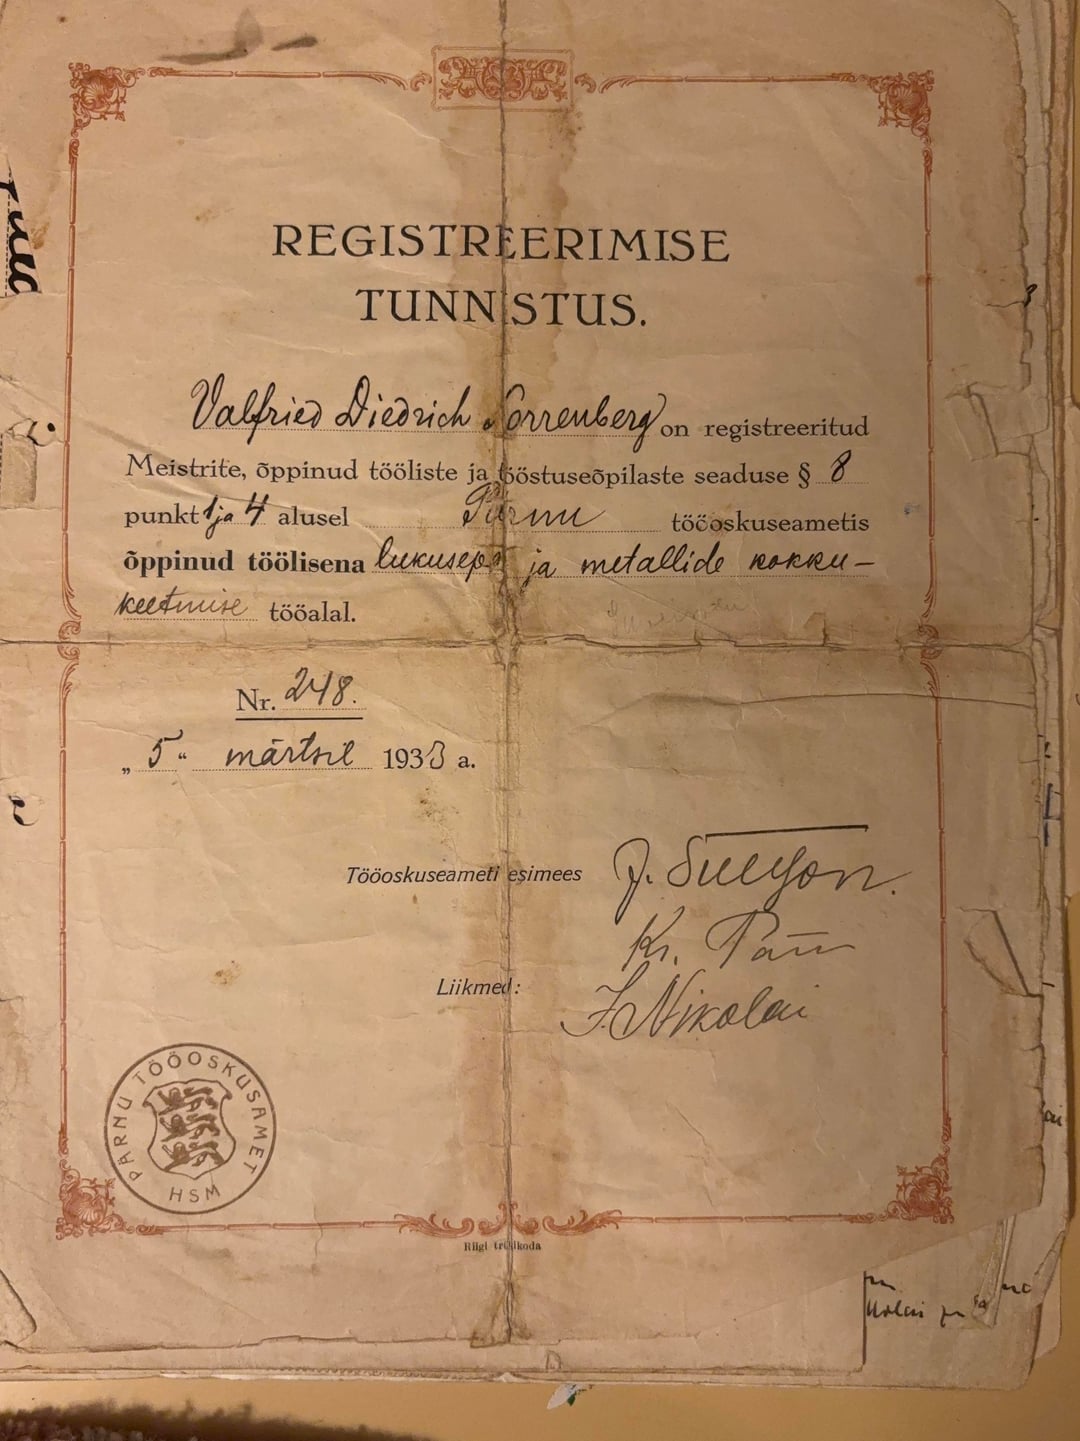 REGISTREERIMISE
TUNNISTUS.
Valfried Diedrich Norrenberg on registreeritud
Meistrite, õppinud tööliste ja tööstuseõpilaste seaduse § 8
punkt 1 ja 4 alusel Pärnu tööoskuseametis
õppinud töölisena lukusepa ja metallide kokku-
keetmise tööalal.
Nr. 248.
„ 5 “ märtsil 1938 a.
Tööoskuseameti esimees J.
Kr.
Liikmed:
J. Nikolai
PÄRNU TÖÖOSKUSAMET
HSM
Riigi trükikoda